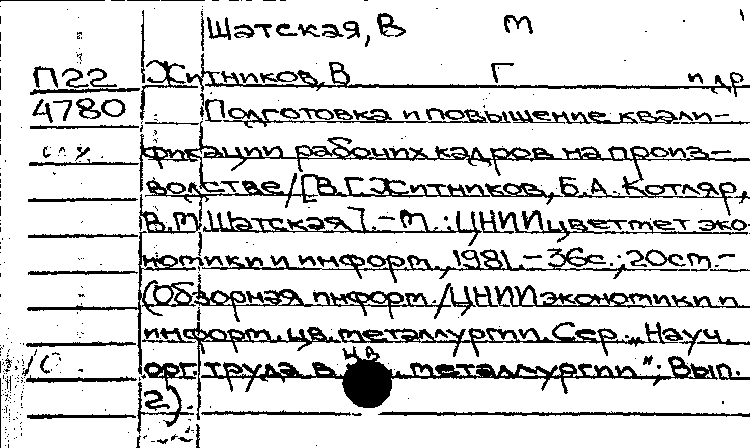 Шатская, В М
П22 Житников, В Г и др
4780 Подготовка и повышение квали-
фикации рабочих кадров на произ-
водстве/[В.Г.Житников, Б.А. Котляр,
В.М.Шатская].-М.:ЦНИИцветмет эко
номики и информ., 1981.-36с.; 20см.-
(Обзорная информ./ЦНИИэкономики и
информ. цв. металлургии. Сер. „Науч.
орг. труда в цв. металлургии"; Вып.
2).